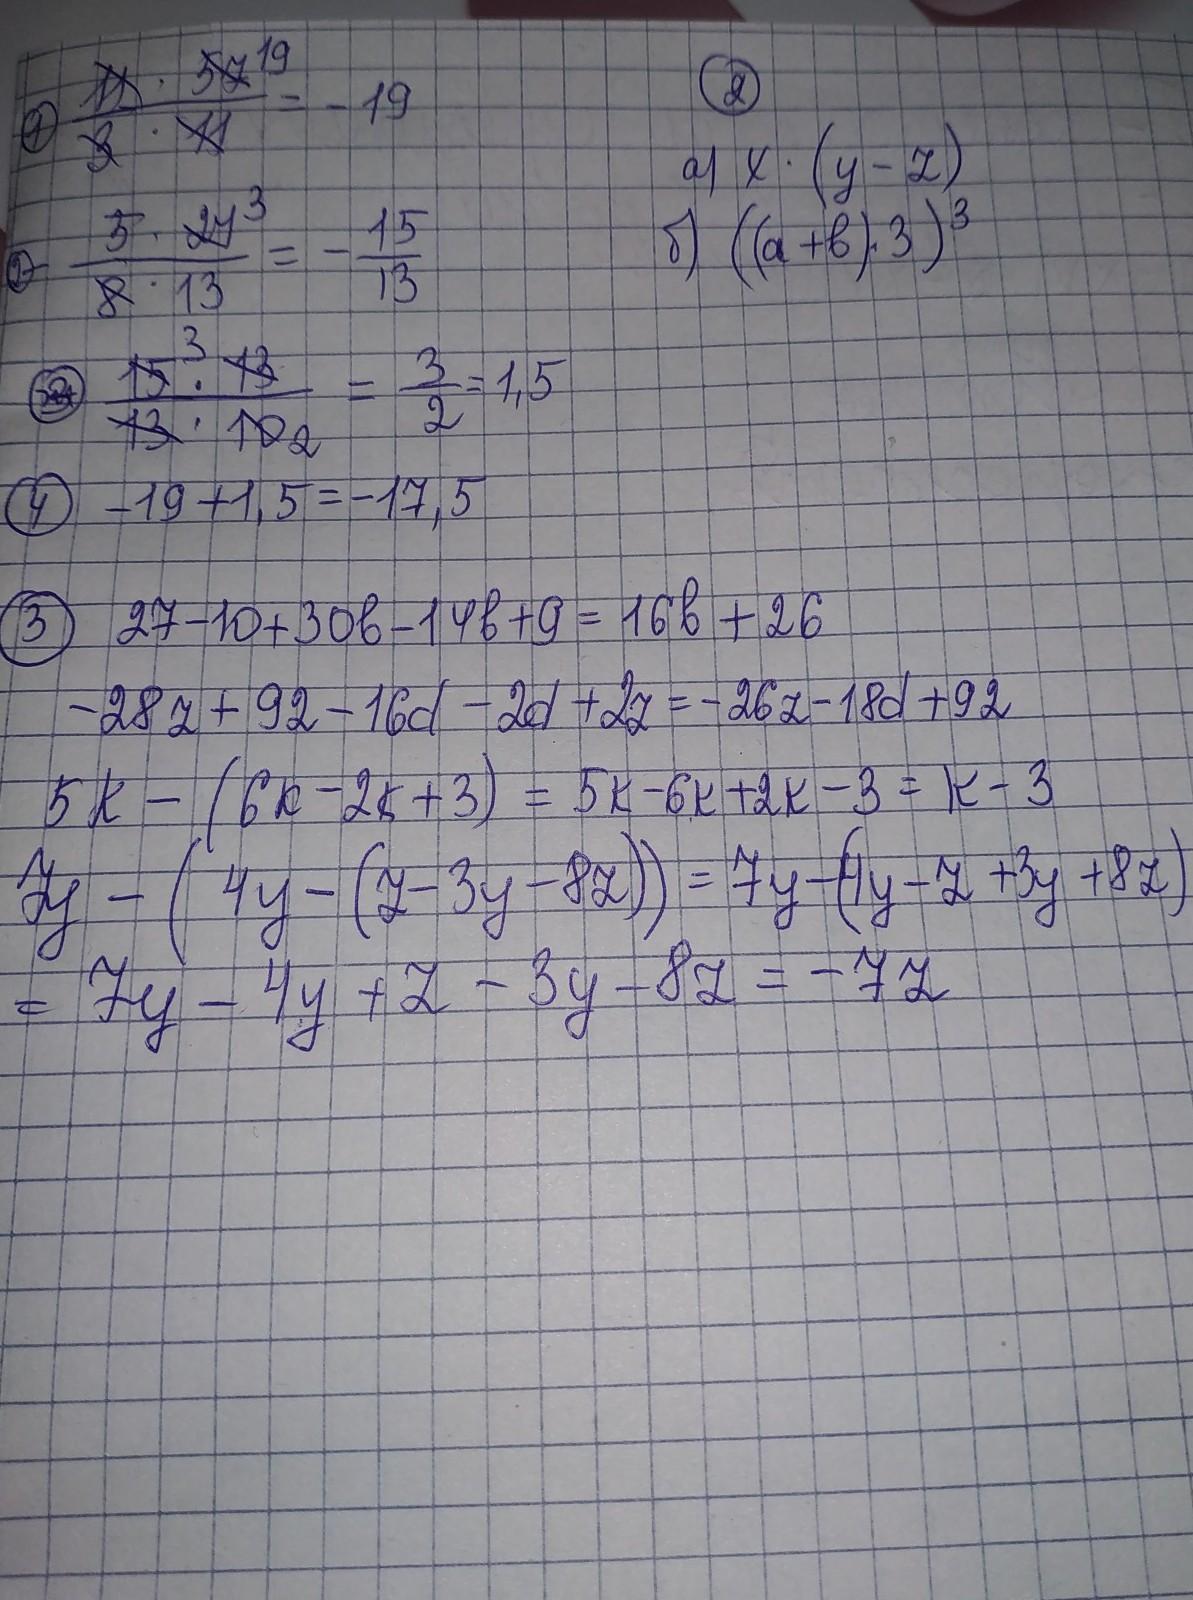 1) - (11 · 57 19) / (3 · 11) = - 19
2) - (5 · 24 3) / (8 · 13) = - 15/13
3) (15 3 · 13) / (13 · 10 2) = 3/2 = 1,5
4) -19 + 1,5 = -17,5
2
а) x · (y - z)
б) ((a + b) · 3)³
3) 27 - 10 + 30b - 14b + 9 = 16b + 26
-28z + 92 - 16d - 2d + 2z = -26z - 18d + 92
5k - (6k - 2k + 3) = 5k - 6k + 2k - 3 = k - 3
7y - (4y - (z - 3y - 8z)) = 7y - (4y - z + 3y + 8z)
= 7y - 4y + z - 3y - 8z = -7z